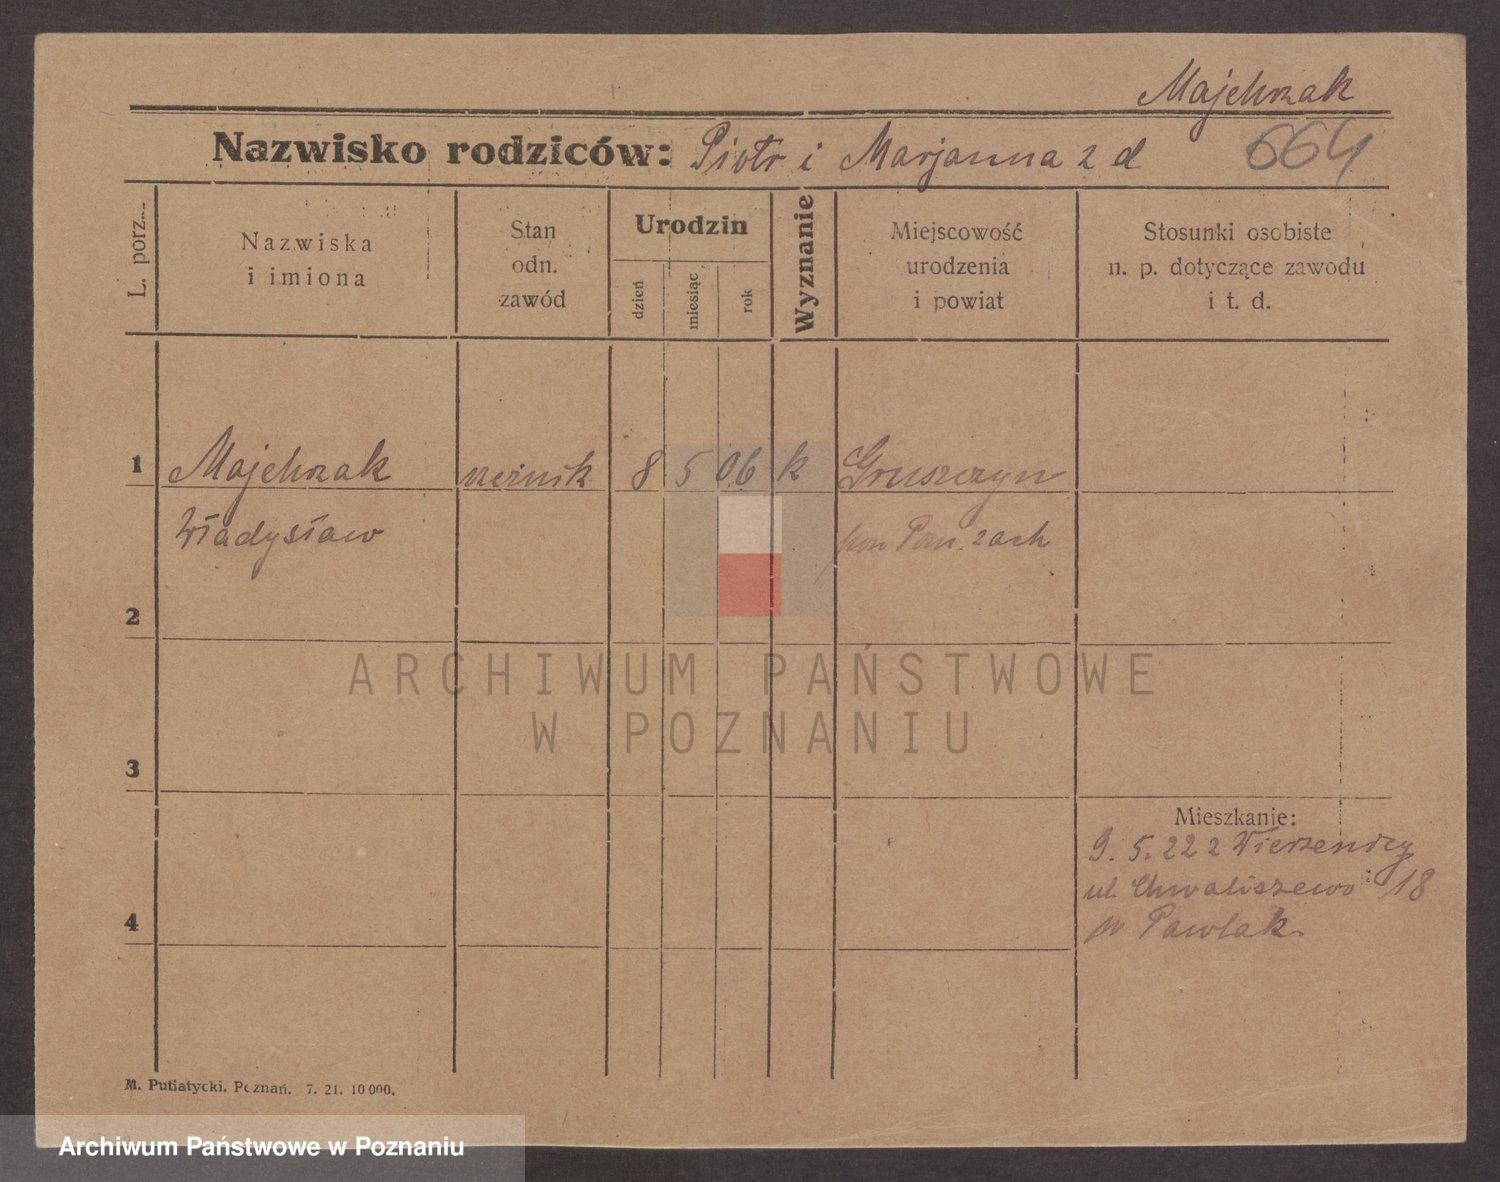 Majchrzak
Nazwisko rodziców: Piotr i Marjanna z d 664
L. porz.
Nazwiska
i imiona
Stan
odn.
zawód
Urodzin
dzień
miesiąc
rok
Wyznanie
Miejscowość
urodzenia
i powiat
Stosunki osobiste
n. p. dotyczące zawodu
i t. d.
1 Majchrzak 8 5 06 k Gruszczyn
Władysław pow Pozn. zach
2
ARCHIWUM PAŃSTWOWE
W POZNANIU
3
Mieszkanie:
9. 5. 22 z Wierzenicy
ul Chwaliszewo 18
p Pawlak
4
M. Putiatycki. Poznań. 7. 21. 10 000.
Archiwum Państwowe w Poznaniu